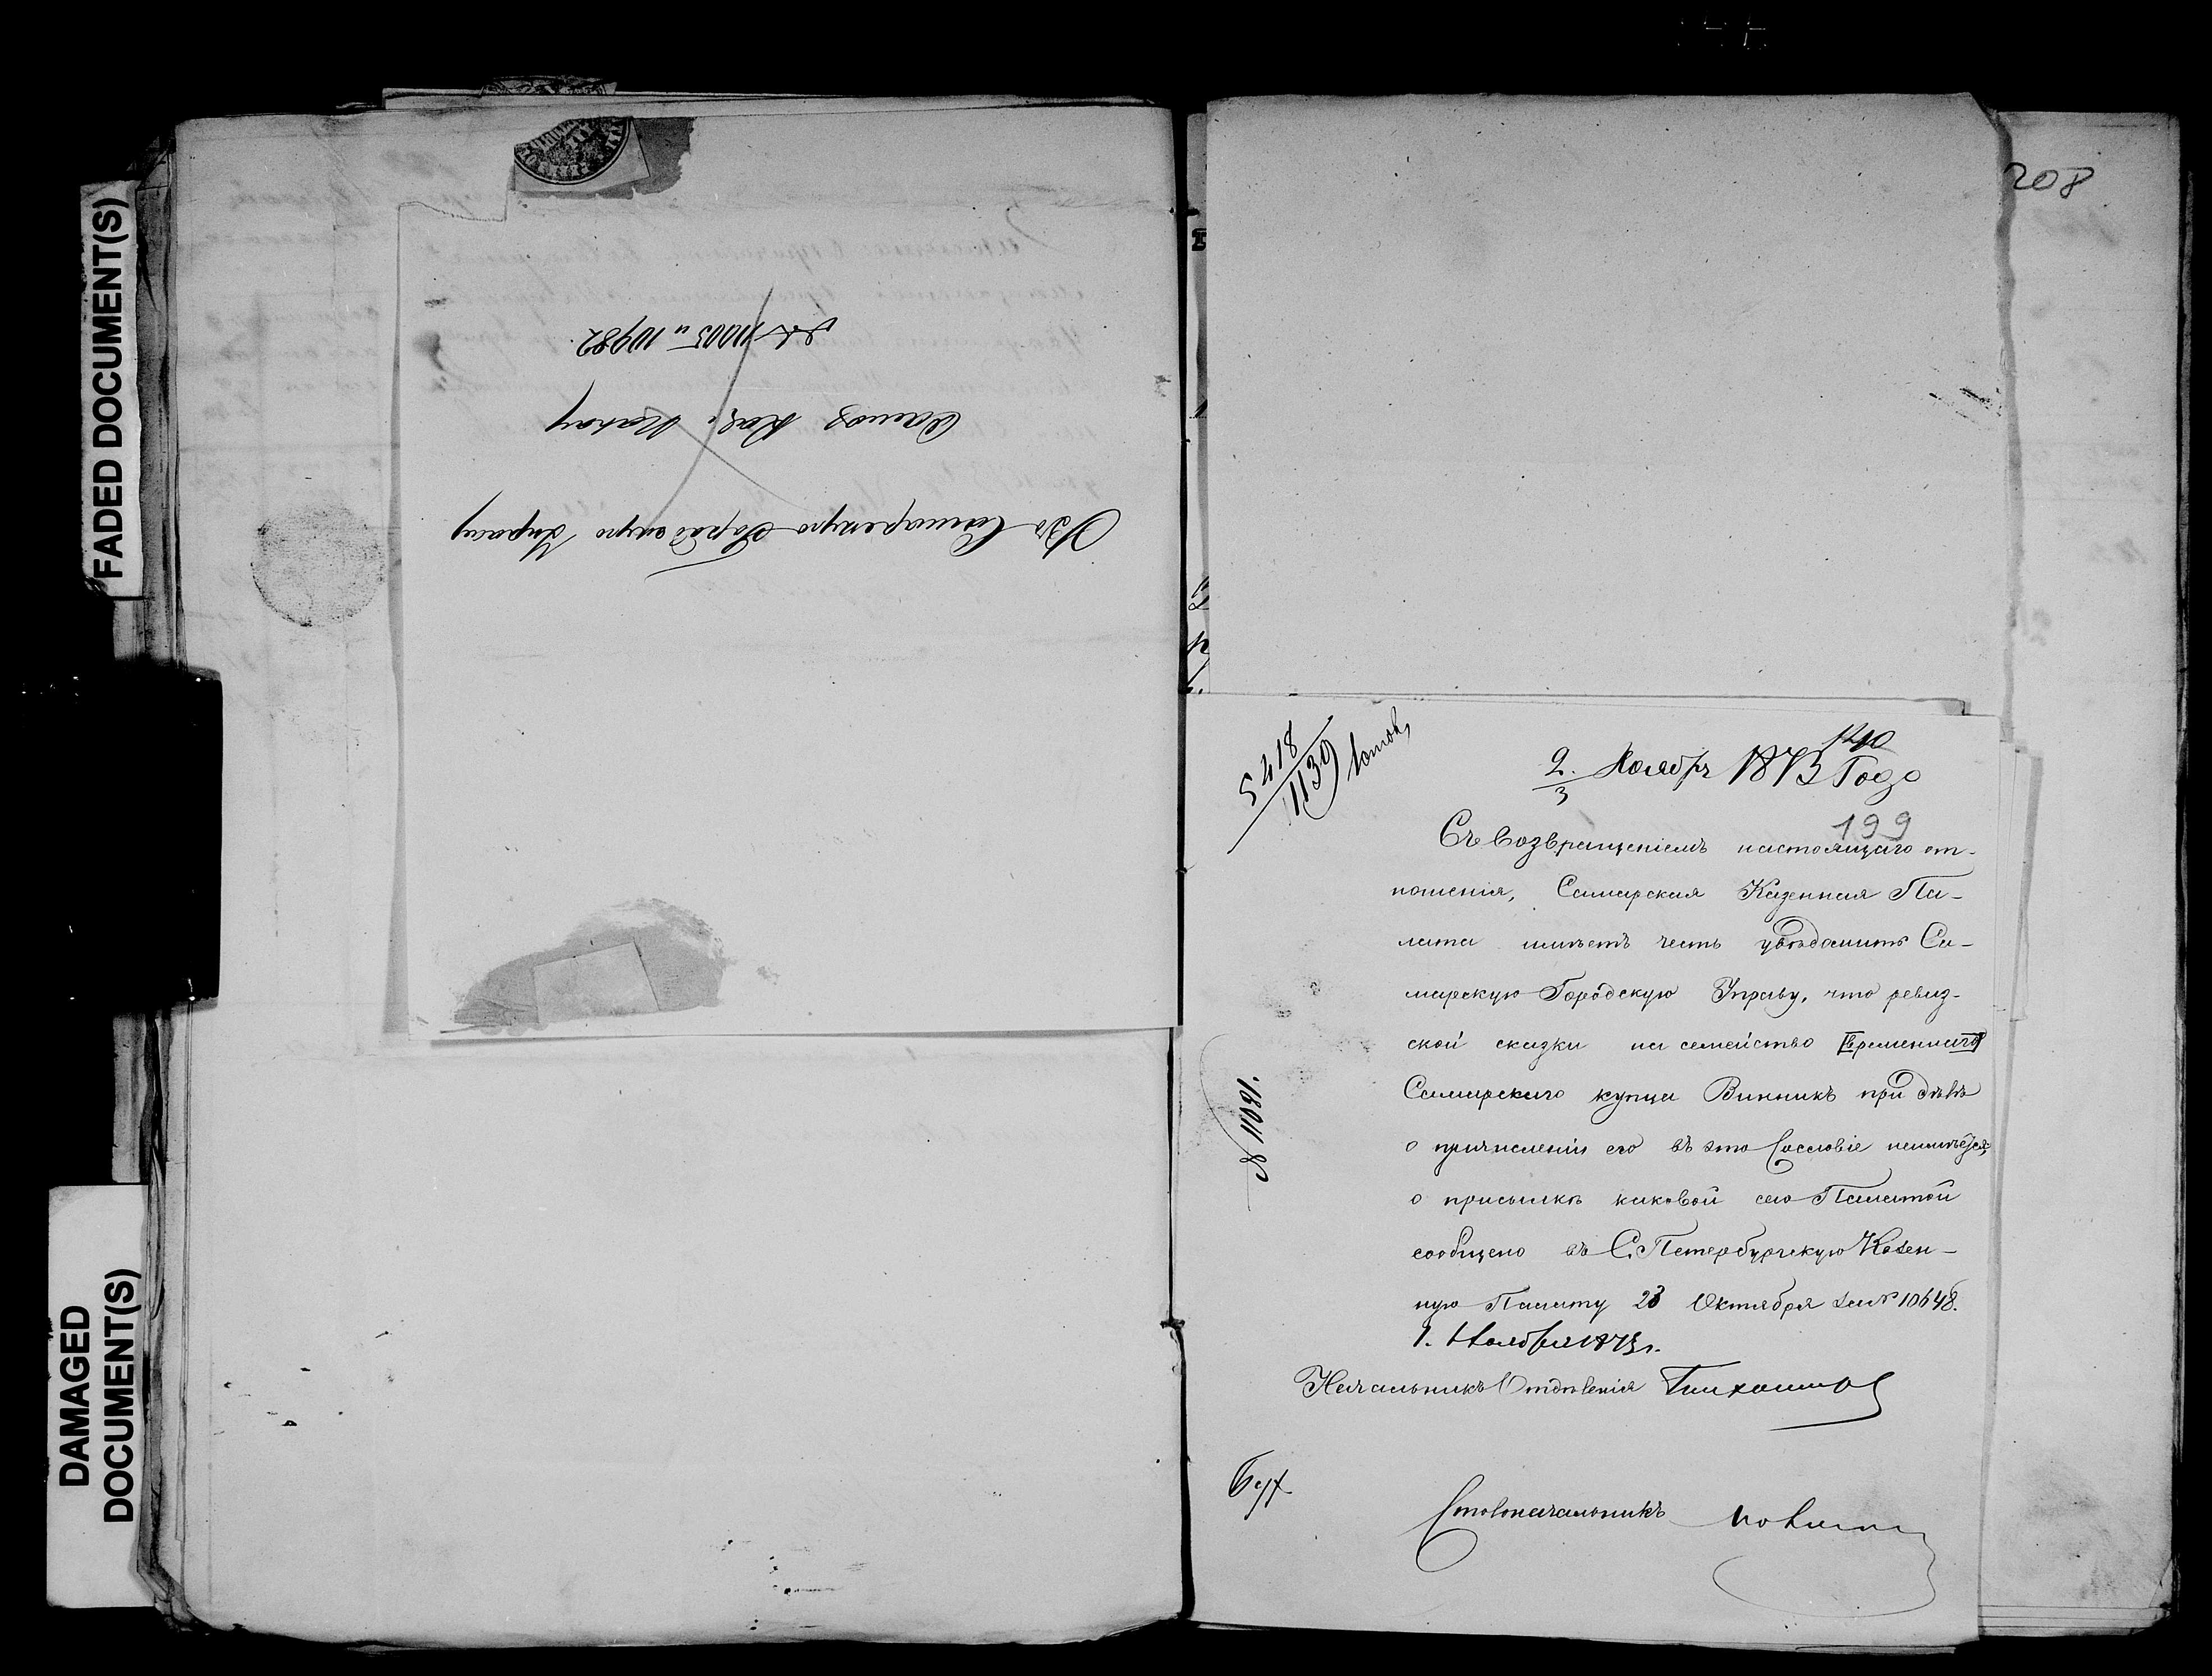 FADED DOCUMENT(S)
DAMAGED
DOCUMENT(S)
Въ Самарскую Городскую Управу
№ 11005 и 10982
208
5418
1139
140
2/3 Ноября 1873 Года
199
Съ возвращеніемъ настоящаго от-
ношенія, Самарская Казенная Па-
лата имѣетъ честь увѣдомить Са-
марскую Городскую Управу, что ревиз-
ской сказки на семейство временнаго
Самарскаго купца Винникъ при дѣлѣ
о причисленіи его въ это Сословіе неимѣется,
о присылкѣ каковой сею Палатой
сообщено въ С. Петербургскую Казен-
ную Палату 23 Октября за № 10648.
1. Ноября 1873 г.
Начальникъ Отдѣленія Тихоми
№ 11091.
Столоначальникъ